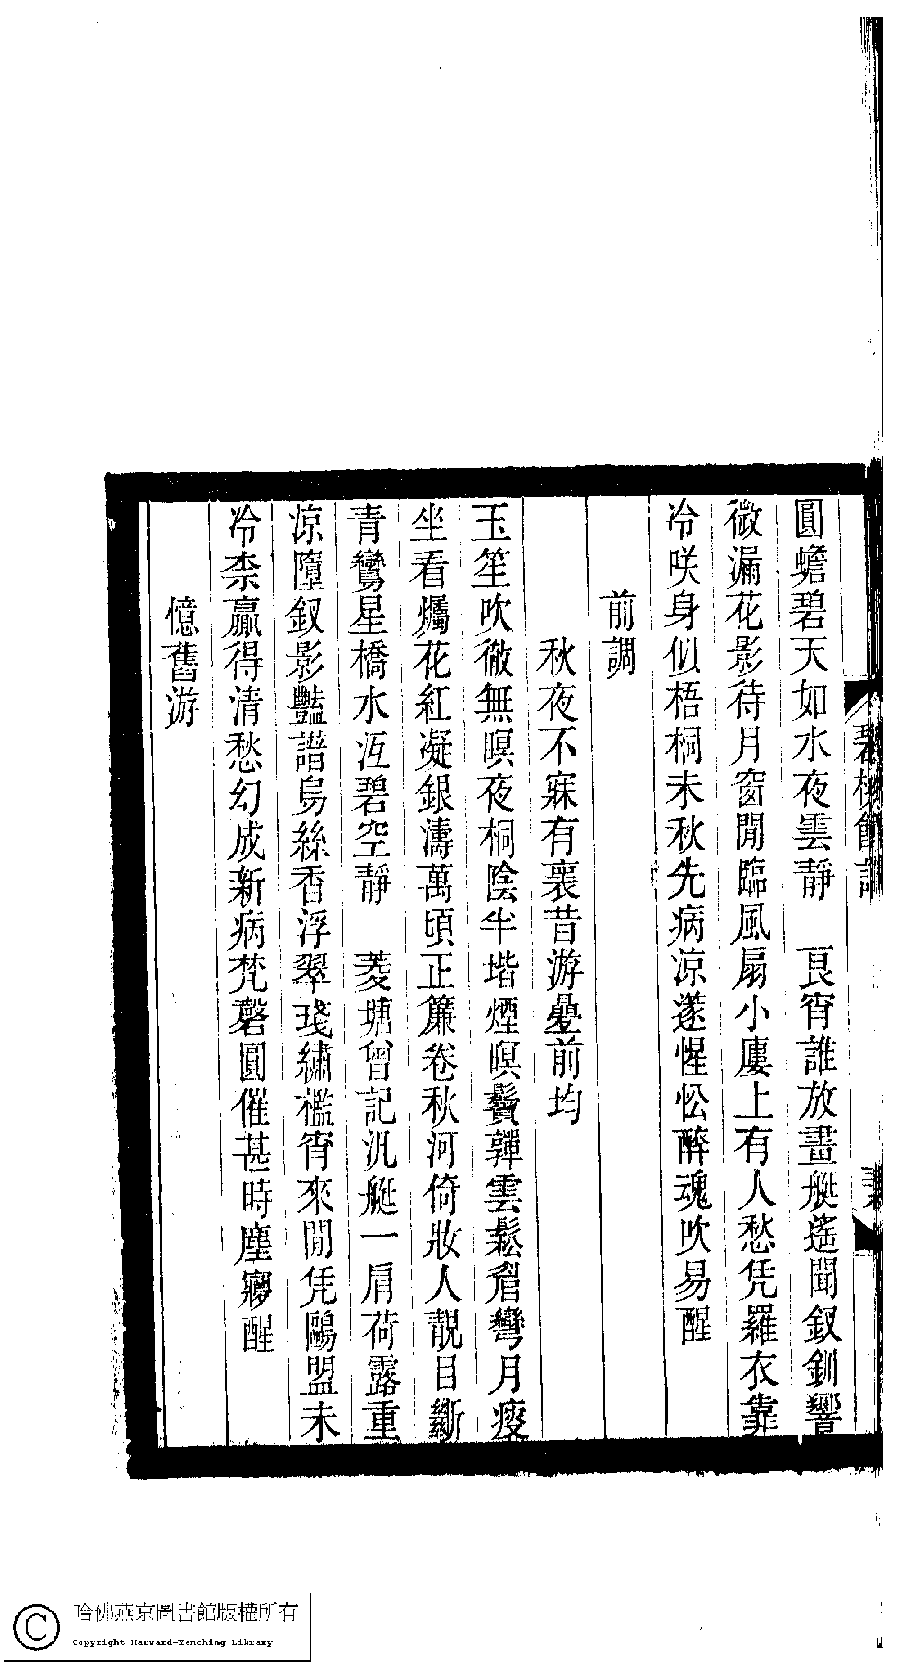 圓蟾碧天如水夜雲靜　良宵誰放畫艇遙聞釵釧響
微漏花影待月窗閒臨風扇小廔上有人愁凭羅衣靠
冷咲身似梧桐未秋先病涼遂惺忪醉魂吹易醒
前調
秋夜不寐有褱昔游疊前均
玉笙吹徹無暝夜桐陰半堦煙暝鬢嚲雲鬆眉彎月瘦
坐看爥花紅凝銀濤萬頃正簾卷秋河倚妝人靚目斷
青鸞星橋水冱碧空靜　菱塘曾記汎艇一肩荷露重
涼墮釵影豔譜烏絲香浮翠琖繡檻宵來閒凭鷗盟未
冷柰贏得清愁幻成新病梵磬圓催甚時塵寱醒
憶舊游
哈佛燕京圖書館版權所有
Copyright Harvard-Yenching Library